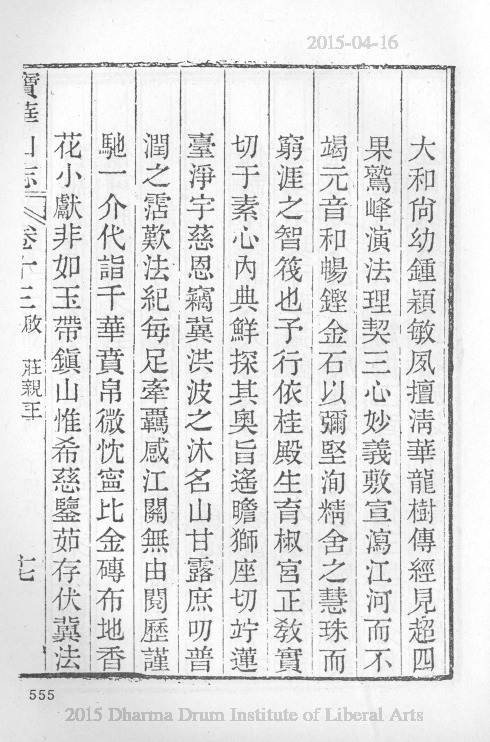 2015-04-16
大和尙幼鍾穎敏夙擅淸華龍樹傳經見超四
果鷲峰演法理契三心妙義敷宣瀉江河而不
竭元音和暢鏗金石以彌堅洵精舍之慧珠而
窮涯之智筏也予行依桂殿生育椒宮正敎實
切于素心內典鮮探其奧旨遙瞻獅座切竚蓮
臺淨宇慈恩竊冀洪波之沐名山甘露庶叨普
潤之霑歎法紀每足牽羈感江關無由閱歷謹
馳一介代詣千華賁帛微忱寍比金磚布地香
花小獻非如玉帶鎭山惟希慈鑒茹存伏冀法
寶華山志 卷十三 啟 莊親王 十七
555
2015 Dharma Drum Institute of Liberal Arts